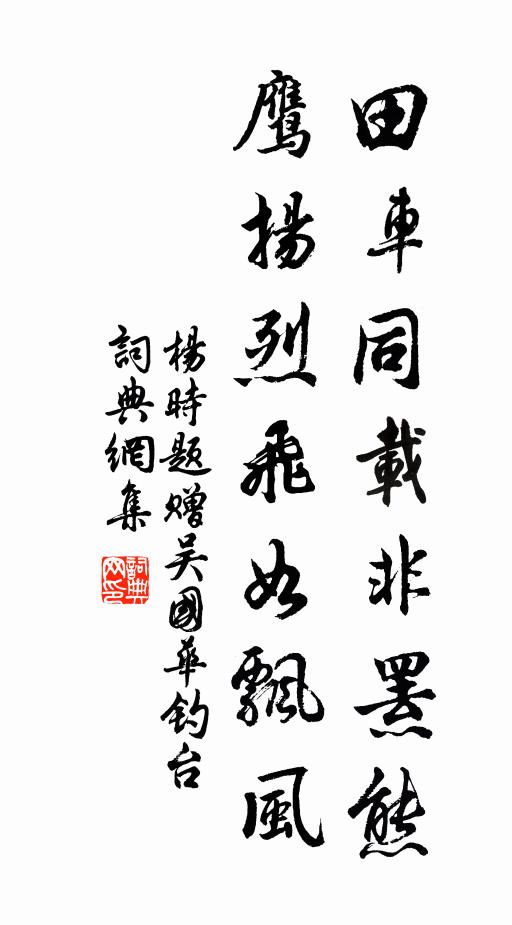 田車同載非羆熊
鷹揚烈飛如飄風
楊時题赠吴國華钓台
詞典網集
詞典网印